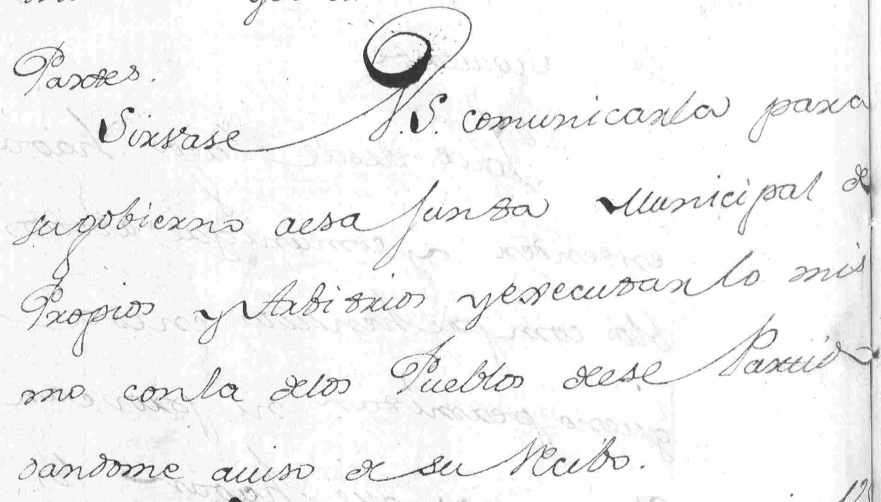 Partes.
Sirvase V.S. comunicarla para
su gobierno aesa Junta Municipal de
Propios y Arbitrios y executarlo mis
mo conla delos Pueblos deese Partido
dandome aviso de su Recibo.